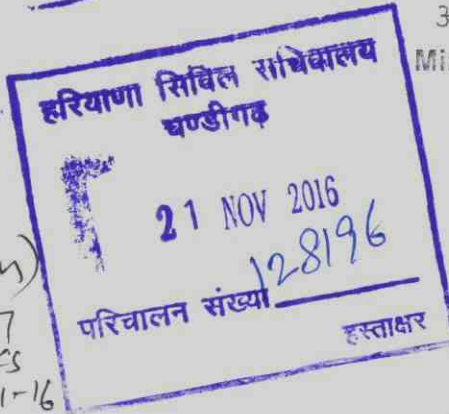 3
Mi
हरियाणा सिविल सचिवालय
चण्डीगढ़
21 NOV 2016
परिचालन संख्या 128196
हस्ताक्षर
7
1-16